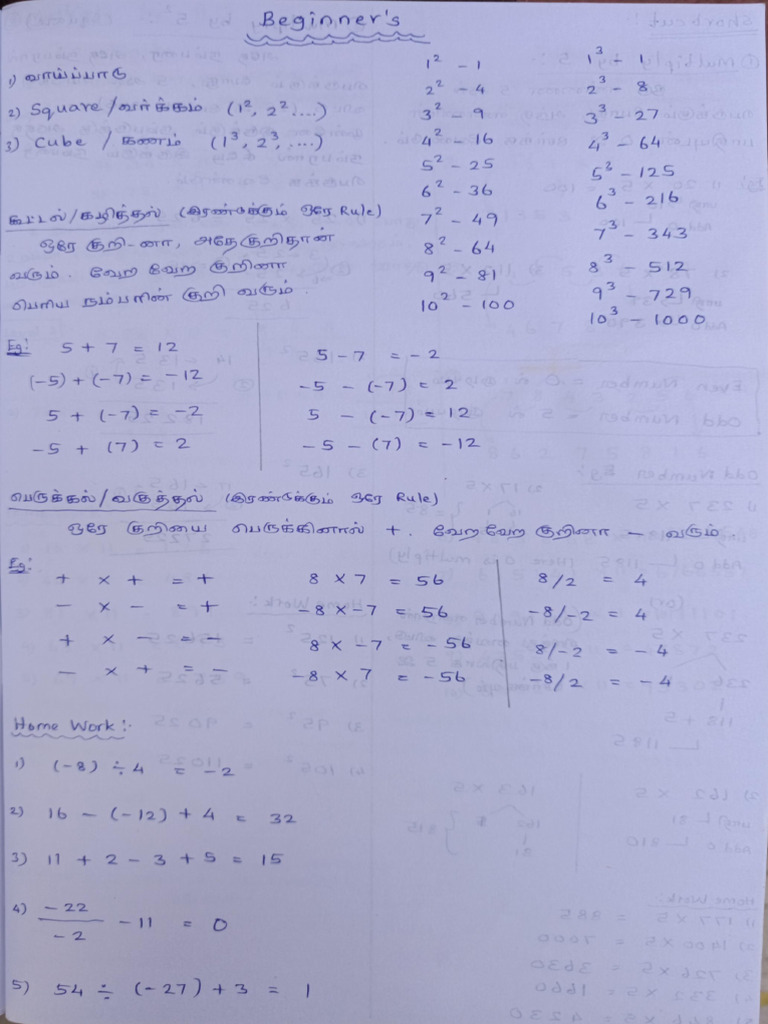 Beginner's
1) வாய்ப்பாடு
2) Square / வர்க்கம் (1², 2² ....)
3) Cube / கணம் (1³, 2³, ....)
1² - 1
2² - 4
3² - 9
4² - 16
5² - 25
6² - 36
7² - 49
8² - 64
9² - 81
10² - 100
1³ - 1
2³ - 8
3³ - 27
4³ - 64
5³ - 125
6³ - 216
7³ - 343
8³ - 512
9³ - 729
10³ - 1000
கூட்டல்/கழித்தல் (இரண்டுக்கும் ஒரே Rule)
ஒரே குறி-னா, அதே குறிதான்
வரும். வேற வேற குறினா
பெரிய நம்பரின் குறி வரும்.
Eg:
5 + 7 = 12
(-5) + (-7) = -12
5 + (-7) = -2
-5 + (7) = 2
5 - 7 = -2
-5 - (-7) = 2
5 - (-7) = 12
-5 - (7) = -12
பெருக்கல்/வகுத்தல் (இரண்டுக்கும் ஒரே Rule)
ஒரே குறியை பெருக்கினால் +. வேற வேற குறினா - வரும்
Eg:
+ × + = +
- × - = +
+ × - = -
- × + = -
8 × 7 = 56
-8 × -7 = 56
8 × -7 = -56
-8 × 7 = -56
8/2 = 4
-8/-2 = 4
8/-2 = -4
-8/2 = -4
Home Work :-
1) (-8) ÷ 4 = -2
2) 16 - (-12) + 4 = 32
3) 11 + 2 - 3 + 5 = 15
4) -22/-2 - 11 = 0
5) 54 ÷ (-27) + 3 = 1